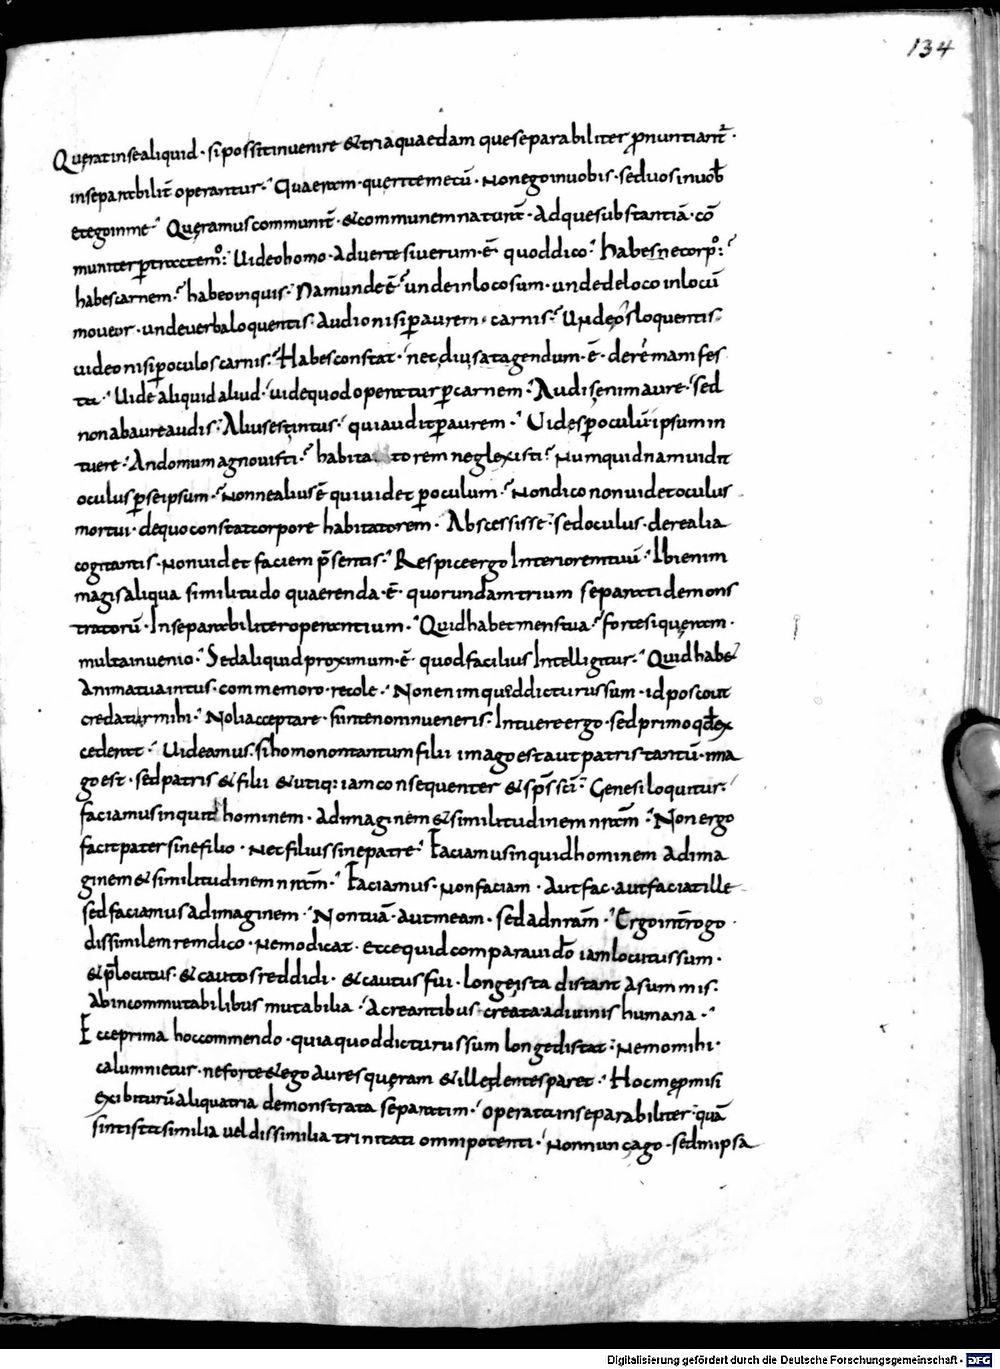 134
Querat in se aliquid · si possit invenire & tria quaedam que separabiliter p̱nuntiant᷑ ·
inseparabilit̄ operantur · Quaeram · querite mecū · Non ego in uobis · sed uos in uob̄
et ego in me · Queramus communit̄ · & communem naturā · Adque substantiā · cō
muniter ꝑtractem᷒ · Uide o homo · Aduerte si uerum · ē · quod dico · habesne corp᷒ ·
habes carnem · habeo inquis · Nam unde ē · unde in loco sum · unde de loco in locū
moueor · unde uerba loquentis · Audio nisi ꝑ aurem · carnis · Unde os loquentis
uideo nisi ꝑ oculos carnis · Habes constat · nec diu satagendum · ē · de re manifes
ta · Uide aliquid aliud · uide quod operatur ꝑ carnem · Audis enim aure · sed
non ab aure audis · Alius est intus · qui audit ꝑ aurem · Uides ꝑ oculū ipsum in
tuere · An domum agnouisti · habitatorem neglexisti · Numquidnam uidit
oculus ꝑ se ipsum · Nonne alius ē qui uidet ꝑ oculum · Non dico non uidet oculus
mortui · de quo constat corpore habitatorem · Abscessisse · sed oculus · de re alia
cogitantis · Non uidet faciem p̄sentis · Respice ergo Interiorem tuū · Ibi enim
magis aliqua similitudo quaerenda · ē · quorundam trium separati demons
tratorū · Inseparabiliter operantium · Quid habet mens tua · forte si queram ·
multa inuenio · Sed aliquid proximum · ē · quod facilius Intelligitur · Quid habe
Anima tua intus · commemoro · recole · Non enim quod dicturus sum · id posco ut
credatur mihi · Noli acceptare · si in te non inueneris · Intuere ergo · sed primo qđ ex
cederat · Uideamus · si homo non tantum filii imago est aut patris tantū · ima
go est · sed patris & filii & utiq: iam consequenter & sp̄s sc̄i · Genesi loquitur ·
faciamus inquid hominem · Ad imaginem & similitudinem nr̄am · Non ergo
facit pater sine filio · Nec filius sine patre · Faciamus inquid hominem Ad ima
ginem & similitudinem nr̄am · Faciamus · Non faciam · Aut fac · aut faciat ille
sed faciamus ad imaginem · Non tuā · aut meam · sed ad nr̄am · Ergo int̄rogo ·
dissimilem rem dico · Nemo dicat · Ecce quid comparauit d̄o iam locutus sum ·
& p̄locutus · & cautos reddidi · & cautus fui · longe ista distant A summis ·
Ab incommutabilibus mutabilia · A creantibus creata · a diuinis humana ·
Ecce prima hoc commendo · quia quod dicturus sum longe distat · Nemo mihi ·
calumnietur · ne forte & ego aures queram & ille dentes paret · Hoc me p̱misi
exibiturū aliqua tria demonstrata separatim · operata inseparabiliter · quā
sint ista similia uel dissimilia trinitati omnipotenti · Non nunc ago · sed in ipsa
Digitalisierung gefördert durch die Deutsche Forschungsgemeinschaft - DFG